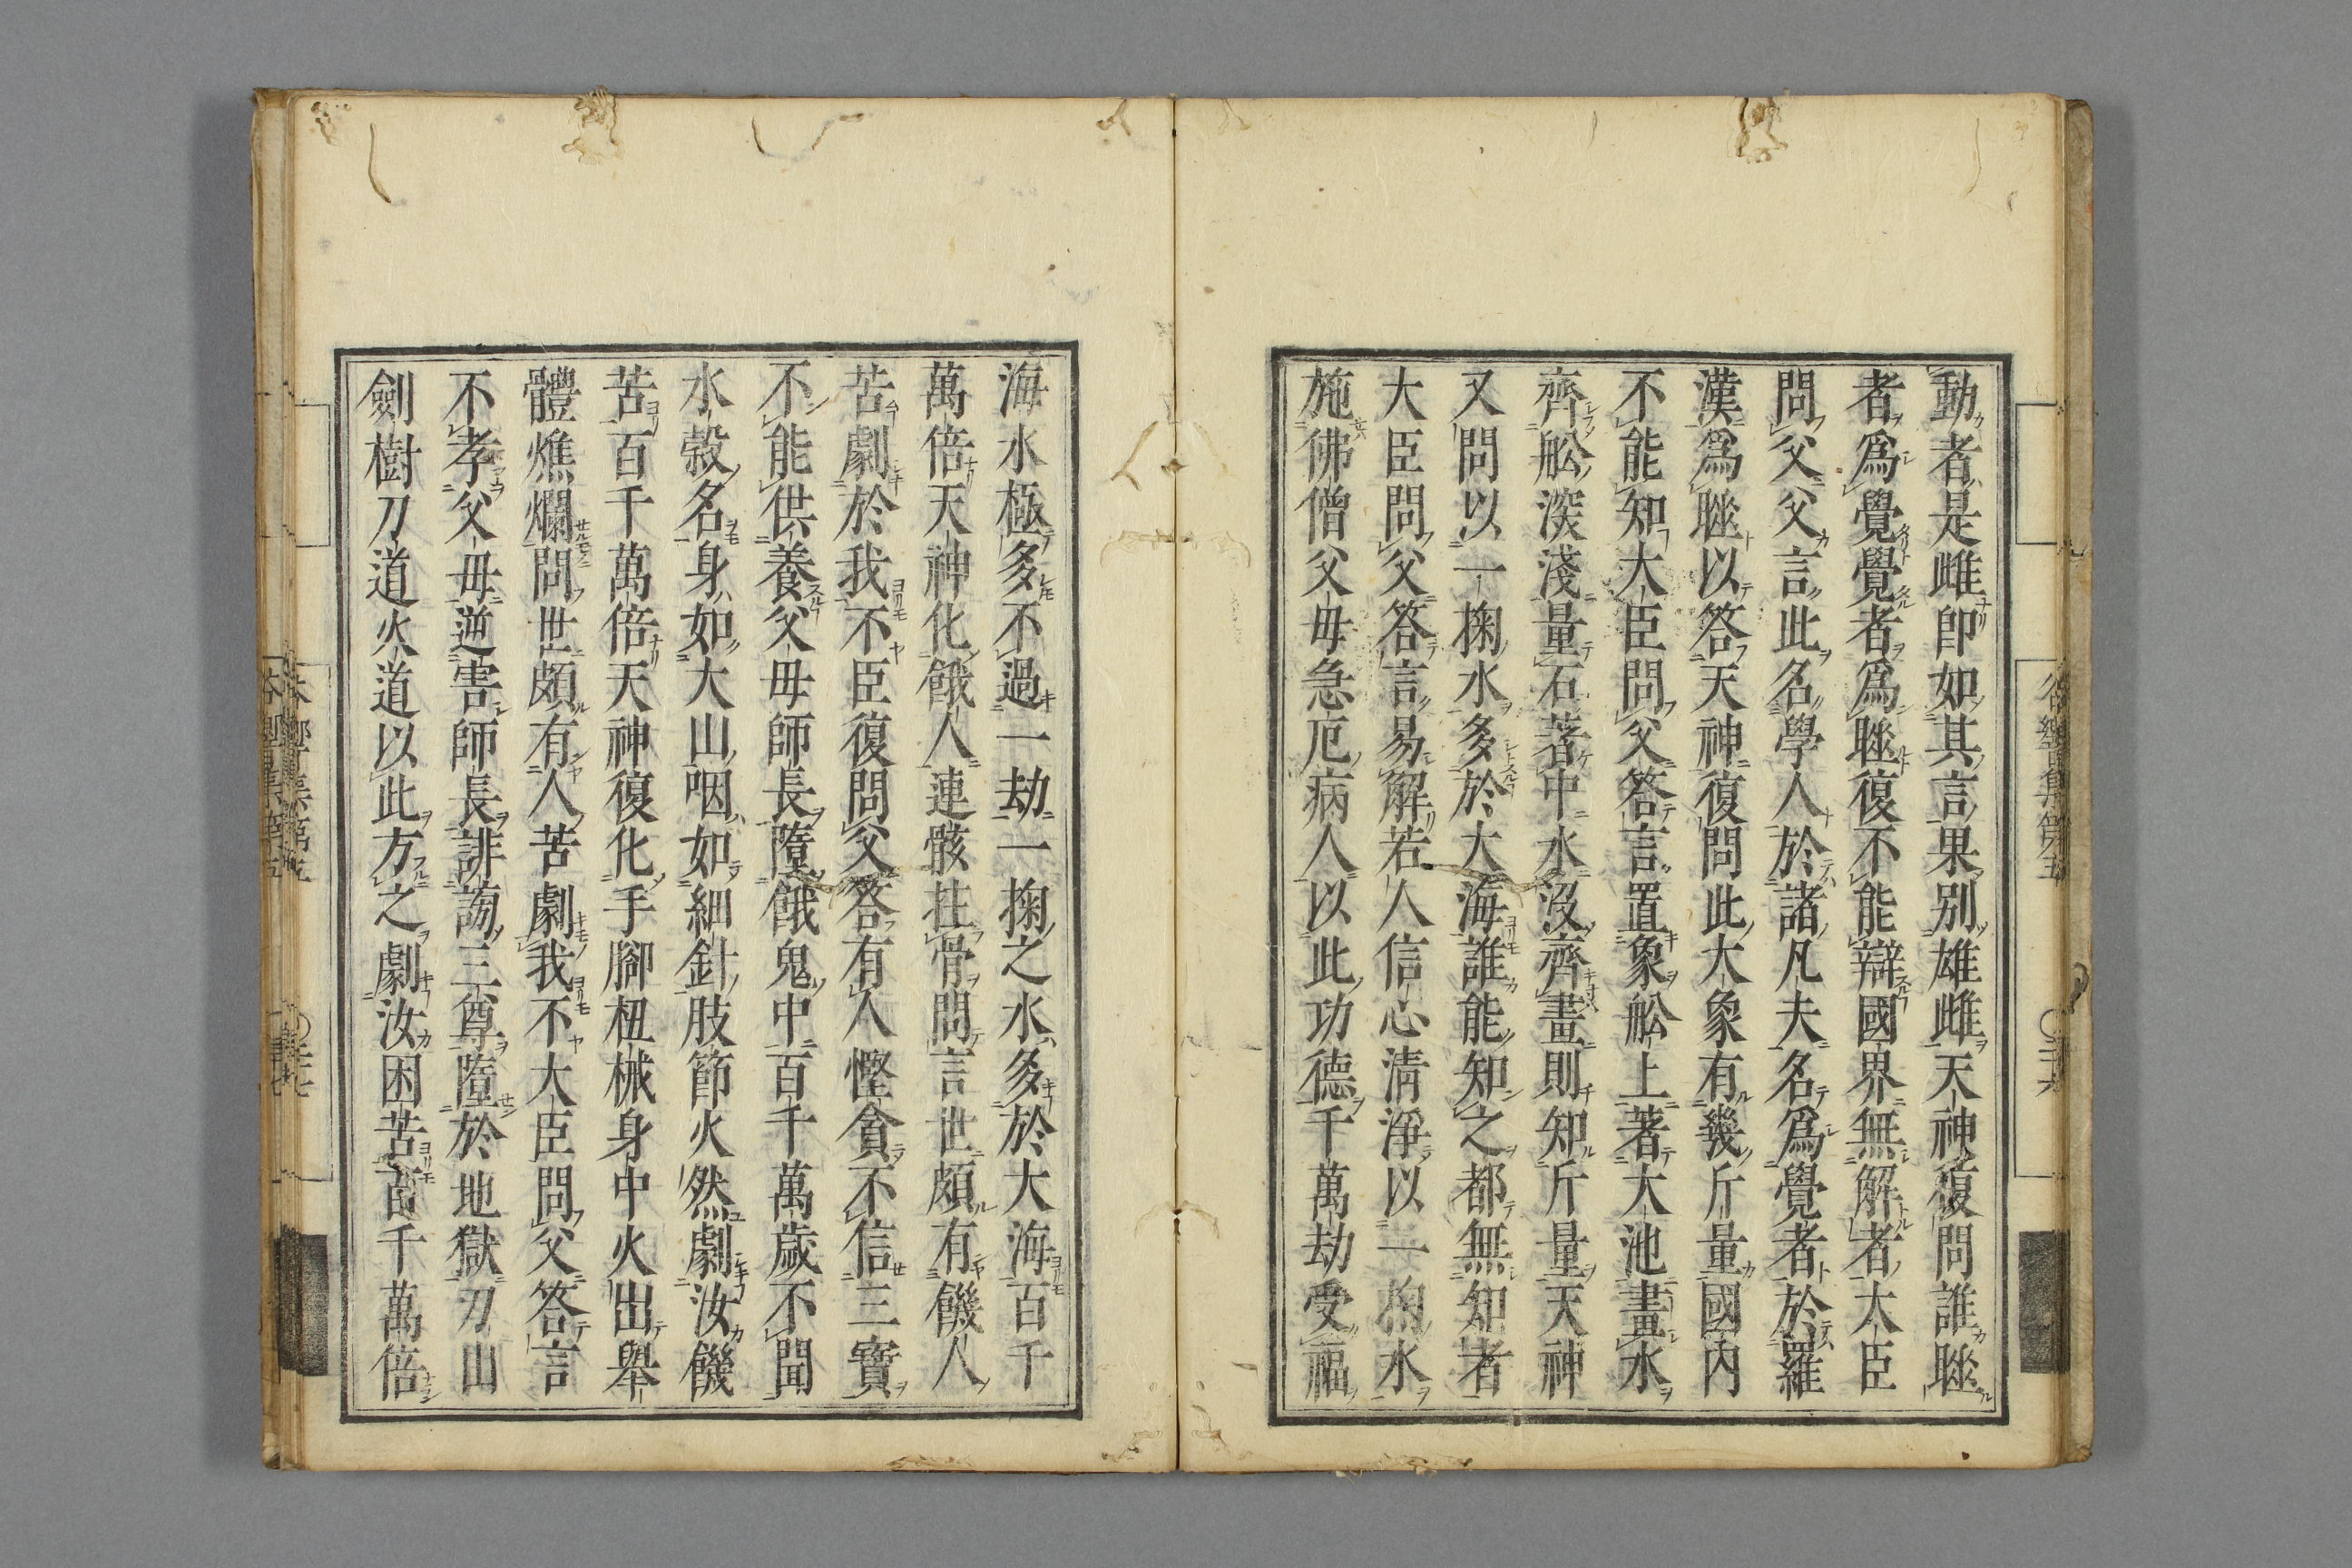 動者是雌即如其言果別雄雌天神復問誰聣
者爲覺覺者爲聣復不能辯國界無解者大臣
問父父言此名學人於諸凡夫名爲覺者於羅
漢爲聣以答天神復問此大象有幾斤量國內
不能知大臣問父答言置象舩上著大池畫水
齊舩深淺量石著中水沒齊畫則知斤量天神
又問以一掬水多於大海誰能知之都無知者
大臣問父答言易解若人信心清淨以一掬水
施佛僧父母急厄病人以此功德千萬劫受福
海水極多不過一劫一掬之水多於大海百千
萬倍天神化餓人連骸拄骨問言世頗有饑人
苦劇於我不臣復問父答有人慳貪不信三寶
不能供養父母師長墮餓鬼中百千萬歲不聞
水穀名身如大山咽如細針肢節火然劇汝饑
苦百千萬倍天神復化手腳杻械身中火出舉
體燋爛問世頗有人苦劇我不大臣問父答言
不孝父母逆害師長誹謗三尊墮於地獄刀山
劍樹刀道火道以此方之劇汝困苦百千萬倍